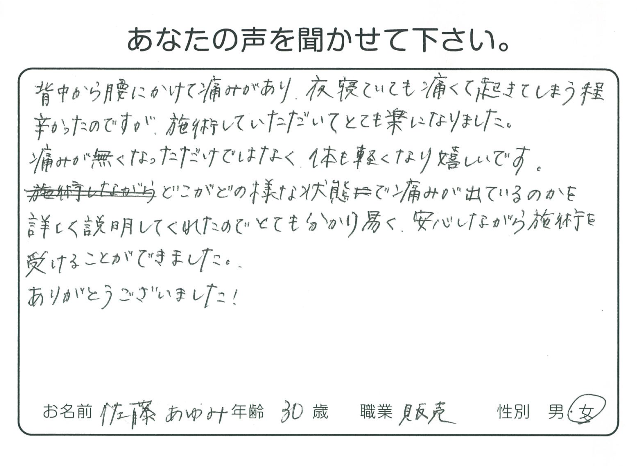 あなたの声を聞かせて下さい。
背中から腰にかけて痛みがあり、夜寝ていても痛くて起きてしまう程
辛かったのですが、施術していただいてとても楽になりました。
痛みが無くなっただけではなく、体も軽くなり嬉しいです。
施術しながら どこがどの様な状態で痛みが出ているのかを
詳しく説明してくれたのでとても分かり易く、安心しながら施術を
受けることができました。
ありがとうございました!
お名前 佐藤 あゆみ 年齢 30 歳 職業 販売 性別 男・女